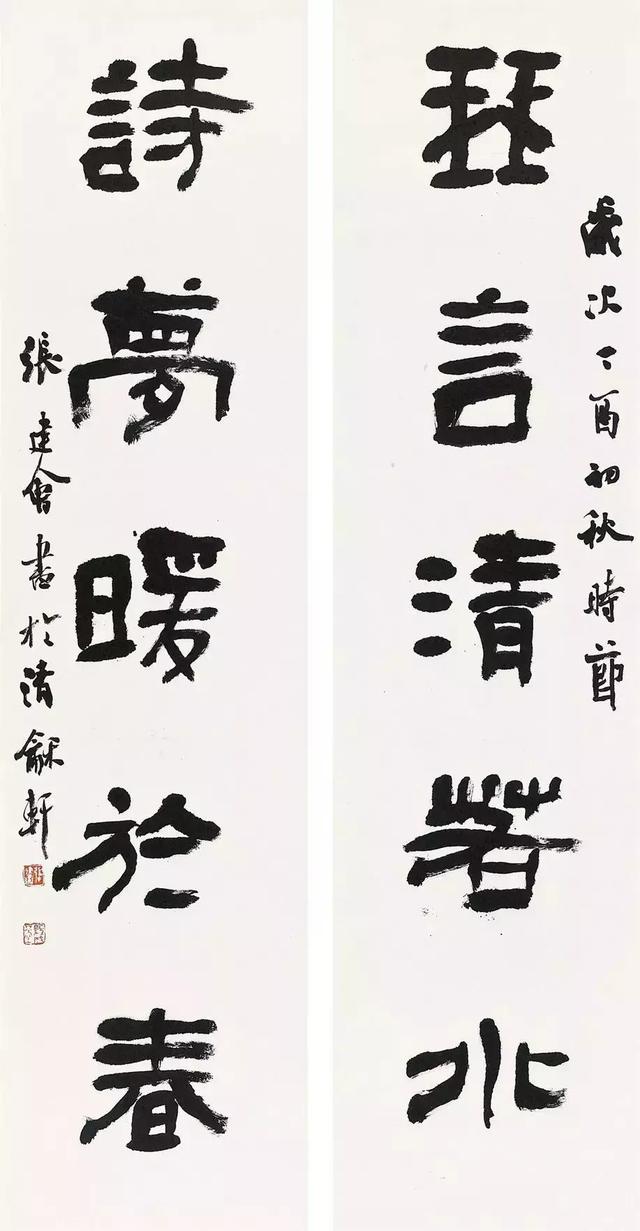 琴言清若水
歲次丁酉初秋時節
詩夢暖於春
張建會書於清龢軒